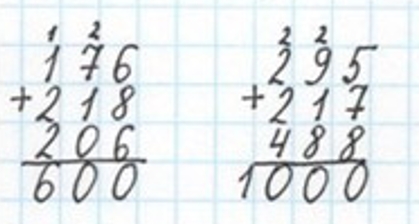 1 2
176
+218
206
600
2 2
295
+217
488
1000